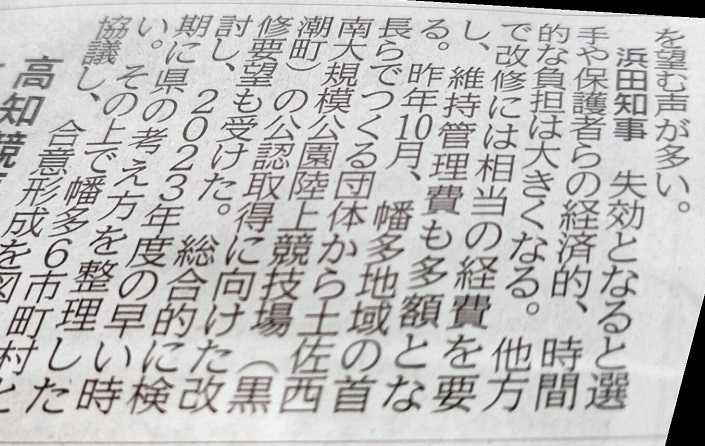 を望む声が多い。
浜田知事　失効となると選
手や保護者らの経済的、時間
的な負担は大きくなる。他方
で改修には相当の経費を要
し、維持管理費も多額とな
る。昨年10月、幡多地域の首
長らでつくる団体から土佐西
南大規模公園陸上競技場（黒
潮町）の公認取得に向けた改
修要望も受けた。総合的に検
討し、2023年度の早い時
期に県の考え方を整理した
い。その上で幡多6市町村と
協議し、合意形成を図
高知競